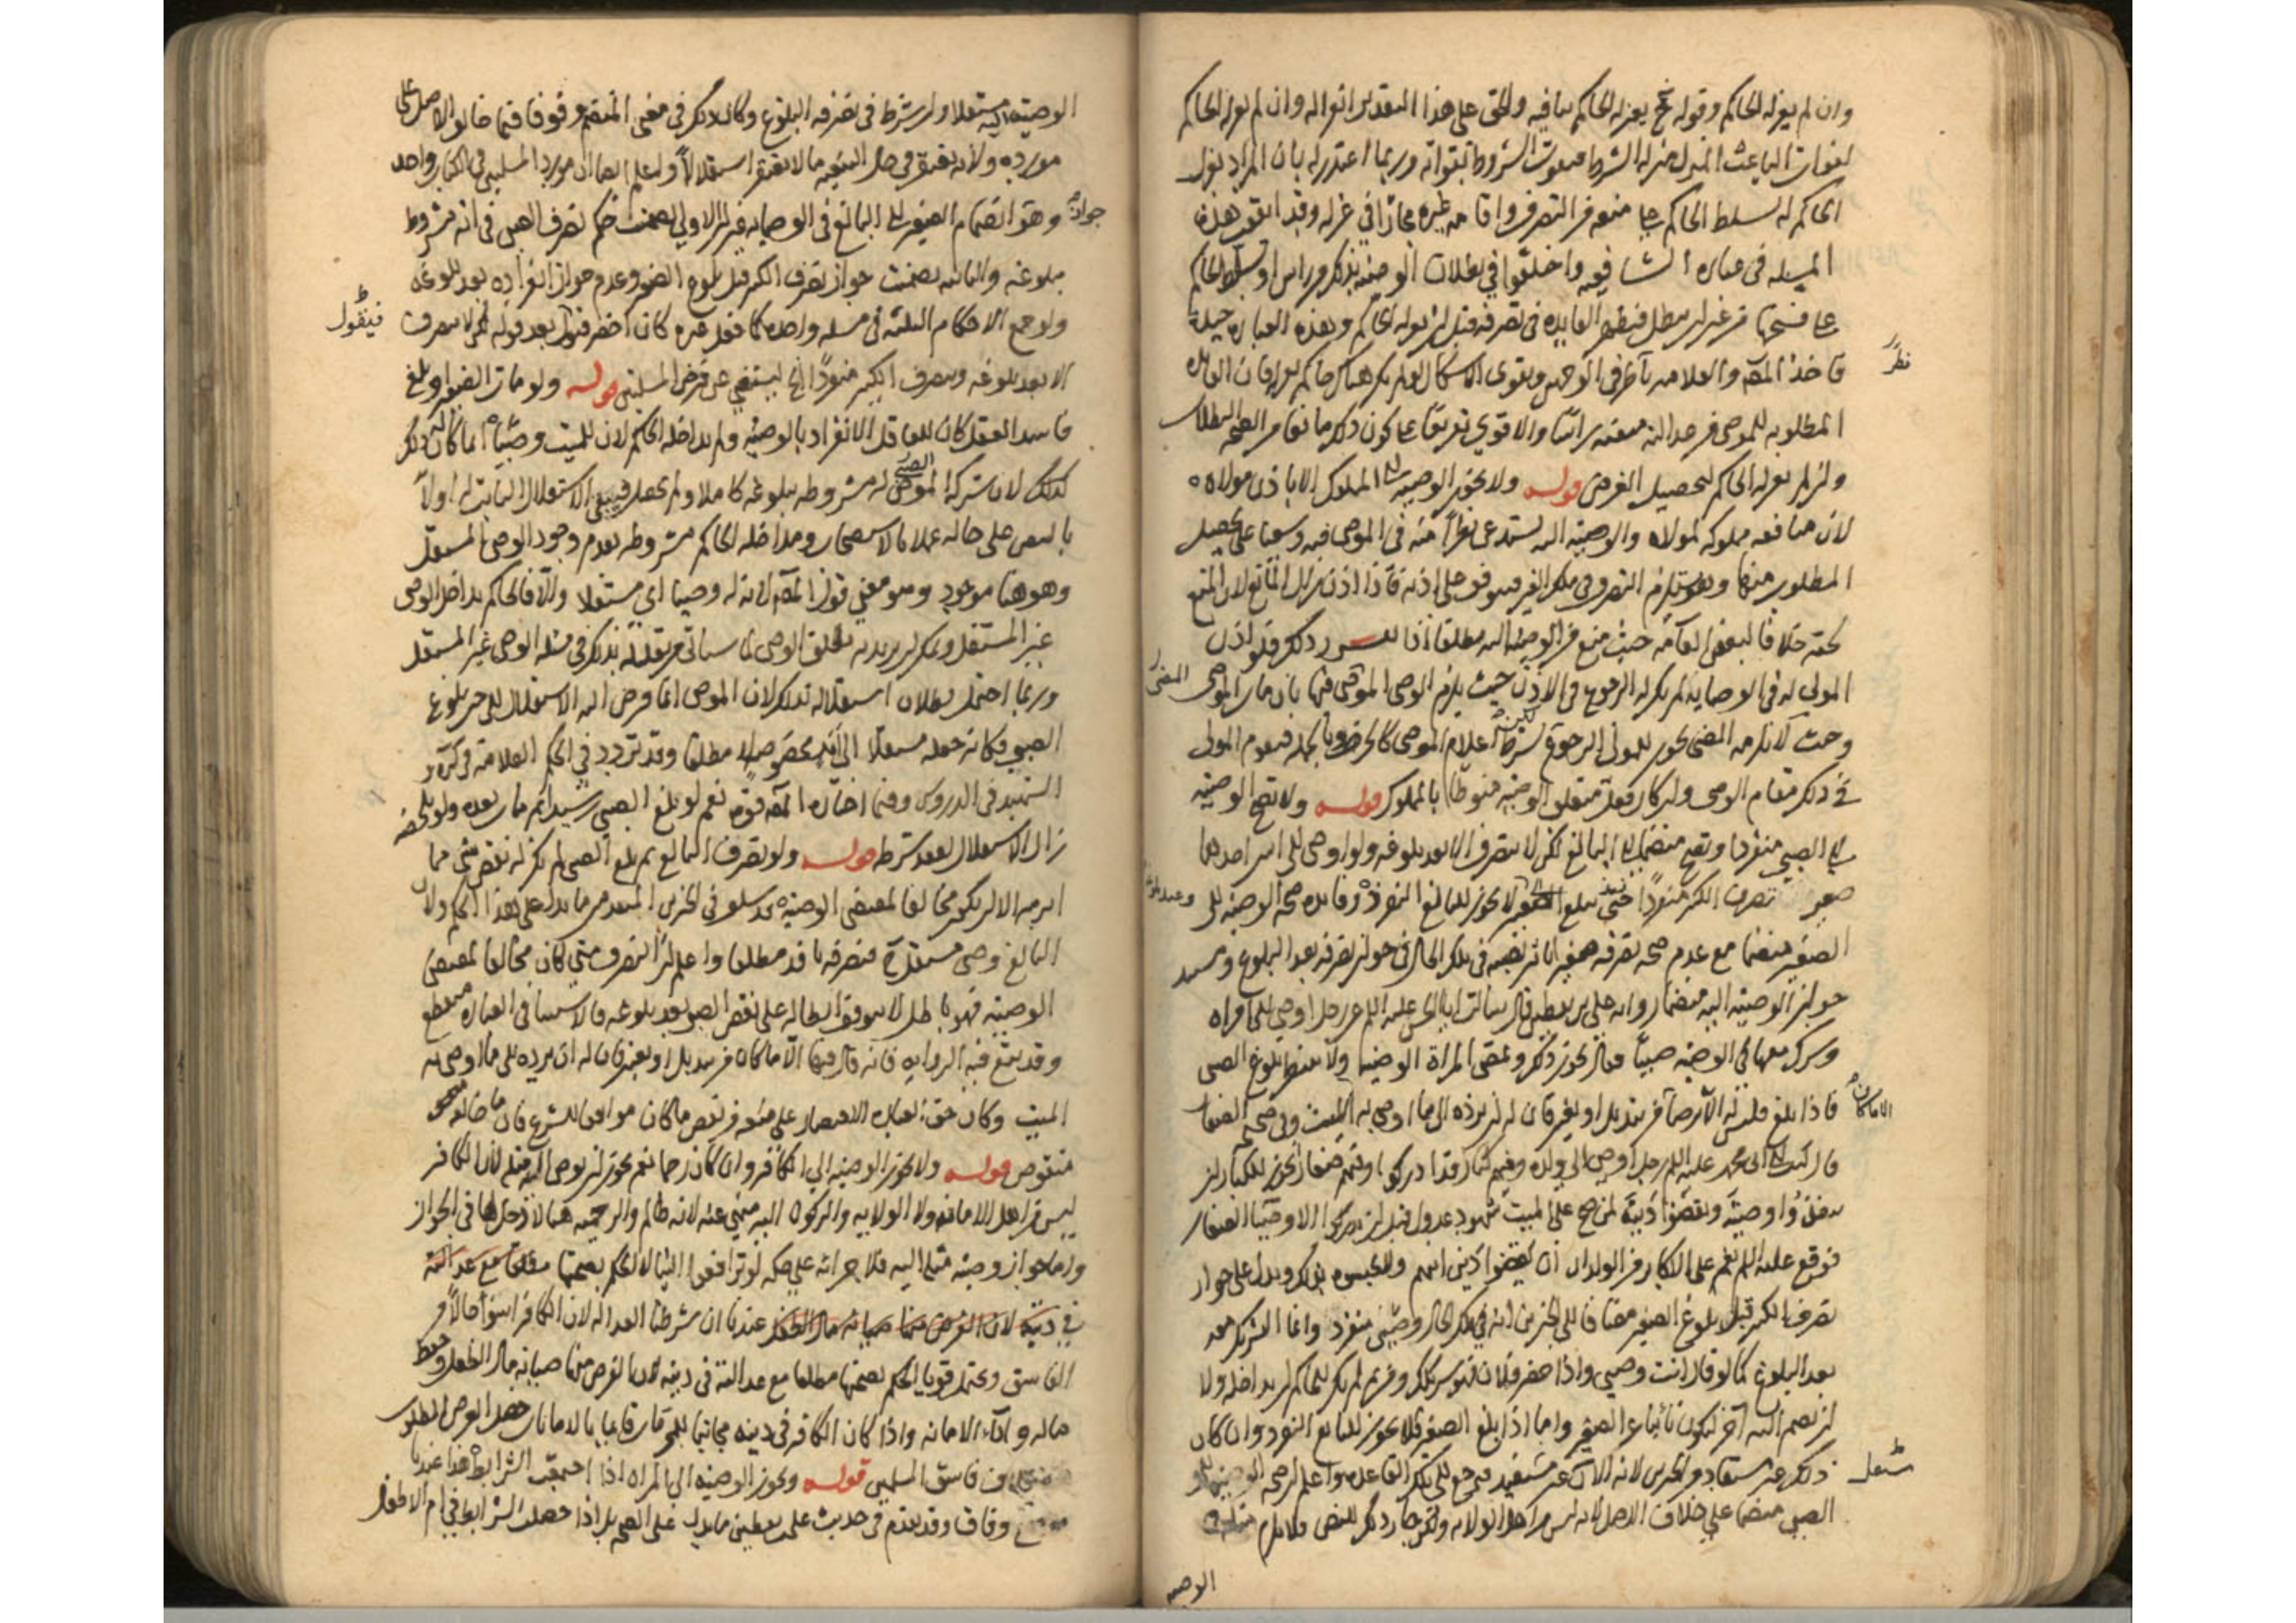 وان لم يعزله الحاكم وقوله يعزله الحاكم ينافيه والحق على هذا التقدير انعزاله وان لم يعزله الحاكم
لفوات الباعث المنزل منزلة الشرط فيفوت الشروط بفواته وربما اعتذر له بان المراد بعزل
الحاكم له تسلط الحاكم على منعه من التصرف واقامه غيره مجازا في عزله وقد اتفقت هذه
المسئله في عباره الشافعيه واختلفوا في بطلان الوصيه بذلك من راس او تسلط الحاكم
على فسخها من غير ان تبطل فتظهر الفايده في تصرفه قبل ان يعزله الحاكم وهذه العباره جيده
نظر
المطلوبه للموصي من عدالته
ولو لم يعزله الحاكم لتحصيل الغرض قوله ولا يجوز الوصيه الى المملوك الا باذن مولاه
لان منافعه مملوكه لمولاه والوصيه اليه تستدعي نظرا منه في الموصى فيه وسعيا على تحصيل
المطلوب منها وهو يستلزم التصرف في ملك الغير فيتوقف على اذنه فاذا اذن زال المانع لان المنع
لحقه خلافا لبعض العامه حيث منع من الوصيه اليه مطلقا اذا تقرر ذلك فلو اذن
المولى له في الوصايه لم يكن له الرجوع في الاذن حيث يلزم الوصي المضي فيها بان مات الموصي
وحيث لا يلزمه المضي يجوز للمولى الرجوع بشرط اعلام الموصي كالحر وبالجمله فيقوم المولى
في ذلك مقام الوصي وان كان فعل متعلق الوصيه منوطا بالمملوك قوله ولا تصح الوصيه
الى الصبي منفردا وتصح منضما الى البالغ لكن لا يتصرف الا بعد بلوغه ولو اوصى الى اثنين احدهما
صغير تصرف الكبير منفردا حتى يبلغ الصغير وعند بلوغه لا يجوز للبالغ التفرد وفايده صحه الوصيه الى
الصغير منضما مع عدم صحه تصرفه صغيرا تاثير نصبه في تلك الحال في جواز تصرفه بعد البلوغ ومستند
جواز الوصيه اليه منضما روايه علي بن يقطين قال سالت ابا الحسن عليه السلم عن رجل اوصى الى امراه
وشرك معها في الوصيه صبيا فقال يجوز ذلك وتمضي المراة الوصيه ولا تنتظر بلوغ الصبي
فاذا بلغ فليس له الا يرضى الا ما كان من تبديل او تغيير فان له ان يرده الى ما اوصى به الميت
قال كتبت الى ابي محمد عليه السلم رجل اوصى الى ولده وفيهم كبار قد ادركوا وفيهم صغار ايجوز للكبار ان
ينفذوا وصيته ويقضوا دينه لمن صح على الميت بشهود عدول قبل ان يدركوا الاوصياء الصغار
فوقع عليه السلم نعم على الاكابر من الولدان ان يقضوا دين ابيهم ولا يحبسوه بذلك ويدل على جواز
تصرف الكبير قبل بلوغ الصغير مضافا الى الخبرين انه في تلك الحال وصي منفرد وانما التشريك معه
بعد البلوغ كما لو قال انت وصيي واذا حضر فلان فهو شريكك ومن ثم لم يكن للحاكم ان يداخله ولا
ان يضم اليه آخر ليكون نائبا عن الصغير واما اذا بلغ الصغير فلا يجوز للبالغ التفرد وان كان
ذلك غير مستفاد من الخبرين لانه الآن غير مستقل فيرجع الى تلك القاعده واعلم ان صحه الوصيه الى
الصبي منضما على خلاف الاصل لانه ليس من اهل الولايه ولكن جاز ذلك للنص فلا يلزم مثله في
الوصيه
الوصيه اليه مستقلا وان شرط في تصرفه البلوغ وكان ذلك في معنى الضم وقوفا فيما خالف الاصل على
مورده ولانه يغتفر في حال التبعيه ما لا يغتفر استقلالا واعلم ايضا ان مورد المسئلتين في الكتاب واحد
وهو جواز انضمام الصغير الى البالغ في الوصايه غير ان الاولى تضمنت حكم تصرف الصبي في انه مشروط
ببلوغه والثانيه تضمنت جواز تصرف الكبير قبل بلوغ الصغير وعدم جواز انفراده بعد بلوغه
ولو جمع الاحكام الثلثه في مسئله واحده كما فعل غيره كان اخصر فيقول بعد قوله لكن لا يتصرف
الا بعد بلوغه ويتصرف الكبير منفردا الخ ليستغني عن فرض المسئلتين قوله ولو مات الصغير او بلغ
فاسد العقل كان للعاقل الانفراد بالوصيه ولم يداخله الحاكم لان للميت وصيا انما كان ذلك
كذلك لان شركة الصبي له مشروطه ببلوغه كاملا ولم يحصل فيبقى الاستقلال الثابت له اولا
بالنص على حاله عملا بالاستصحاب ومداخله الحاكم مشروطه بعدم وجود الوصي المستقل
وهو هنا موجود وهو معنى قول المصه لان له وصيا اي مستقلا والا فالحاكم يداخل الوصي
غير المستقل ويمكن ان يريد به مطلق الوصي لما سياتي من تعليله بذلك في مسئله الوصي غير المستقل
وربما احتمل بطلان استقلاله بذلك لان الموصي انما فوض اليه الاستقلال الى حين بلوغ
الصبي فكانه جعله مستقلا الى امد مخصوص لا مطلقا وقد تردد في الحكم العلامه في كره و
الشهيد في الدروس وفيما اختاره المصه قوه نعم لو بلغ الصبي رشيدا ثم مات بعده ولو بلحظه
زال الاستقلال لفقد شرطه قوله ولو تصرف البالغ ثم بلغ الصبي لم يكن له نقض شئ مما
ابرمه الا ان يكون مخالفا لمقتضى الوصيه قد سلف في الخبرين المتقدمين ما يدل على هذا الحكم ولان
البالغ وصي مستقل ح فتصرفه نافذ مطلقا واعلم ان التصرف متى كان مخالفا لمقتضى
الوصيه فهو باطل لا يتوقف ابطاله على نقض الصبي بعد بلوغه فالاستثنا في العباره منقطع
وقد يقع فيه الروايه فانه قال فيها الا ما كان من تبديل او تغيير فان له ان يرده الى ما اوصى به
الميت وكان حق العباره الاقتصار على منعه من نقض ما كان موافقا للشرع فان ما خالفه
منقوض قوله ولا يجوز الوصيه الى الكافر وان كان رحما نعم يجوز ان يوصي اليه مثله لان الكافر
ليس من اهل الامانه ولا الولايه والركون اليه منهي عنه لانه ظالم والرحميه هنا لا دخل لها في الجواز
واما جواز وصيه مثله اليه فلاجرائه على حكمه لو ترافعوا الينا لا الحكم بصحتها مطلقا مع عدالته
في دينه لان الغرض منها صيانه مال الطفل عندنا ان شرطنا العداله لان الكافر اسوأ حالا من
الفاسق ويحتمل قويا الحكم بصحتها مطلقا مع عدالته في دينه لان الغرض منها صيانه مال الطفل وحفظ
ماله واداء الامانه واذا كان الكافر في دينه مجانبا للمحرمات قائما بالامانات حصل الغرض المطلوب
بخلاف فاسق المسلمين قوله ويجوز الوصيه الى المراه اذا اجتمعت الشرائط هذا عندنا
موضع وفاق وقد تقدم في حديث علي بن يقطين ما يدل على الصحه بل اذا حصلت الشرائط في ام الاطفال